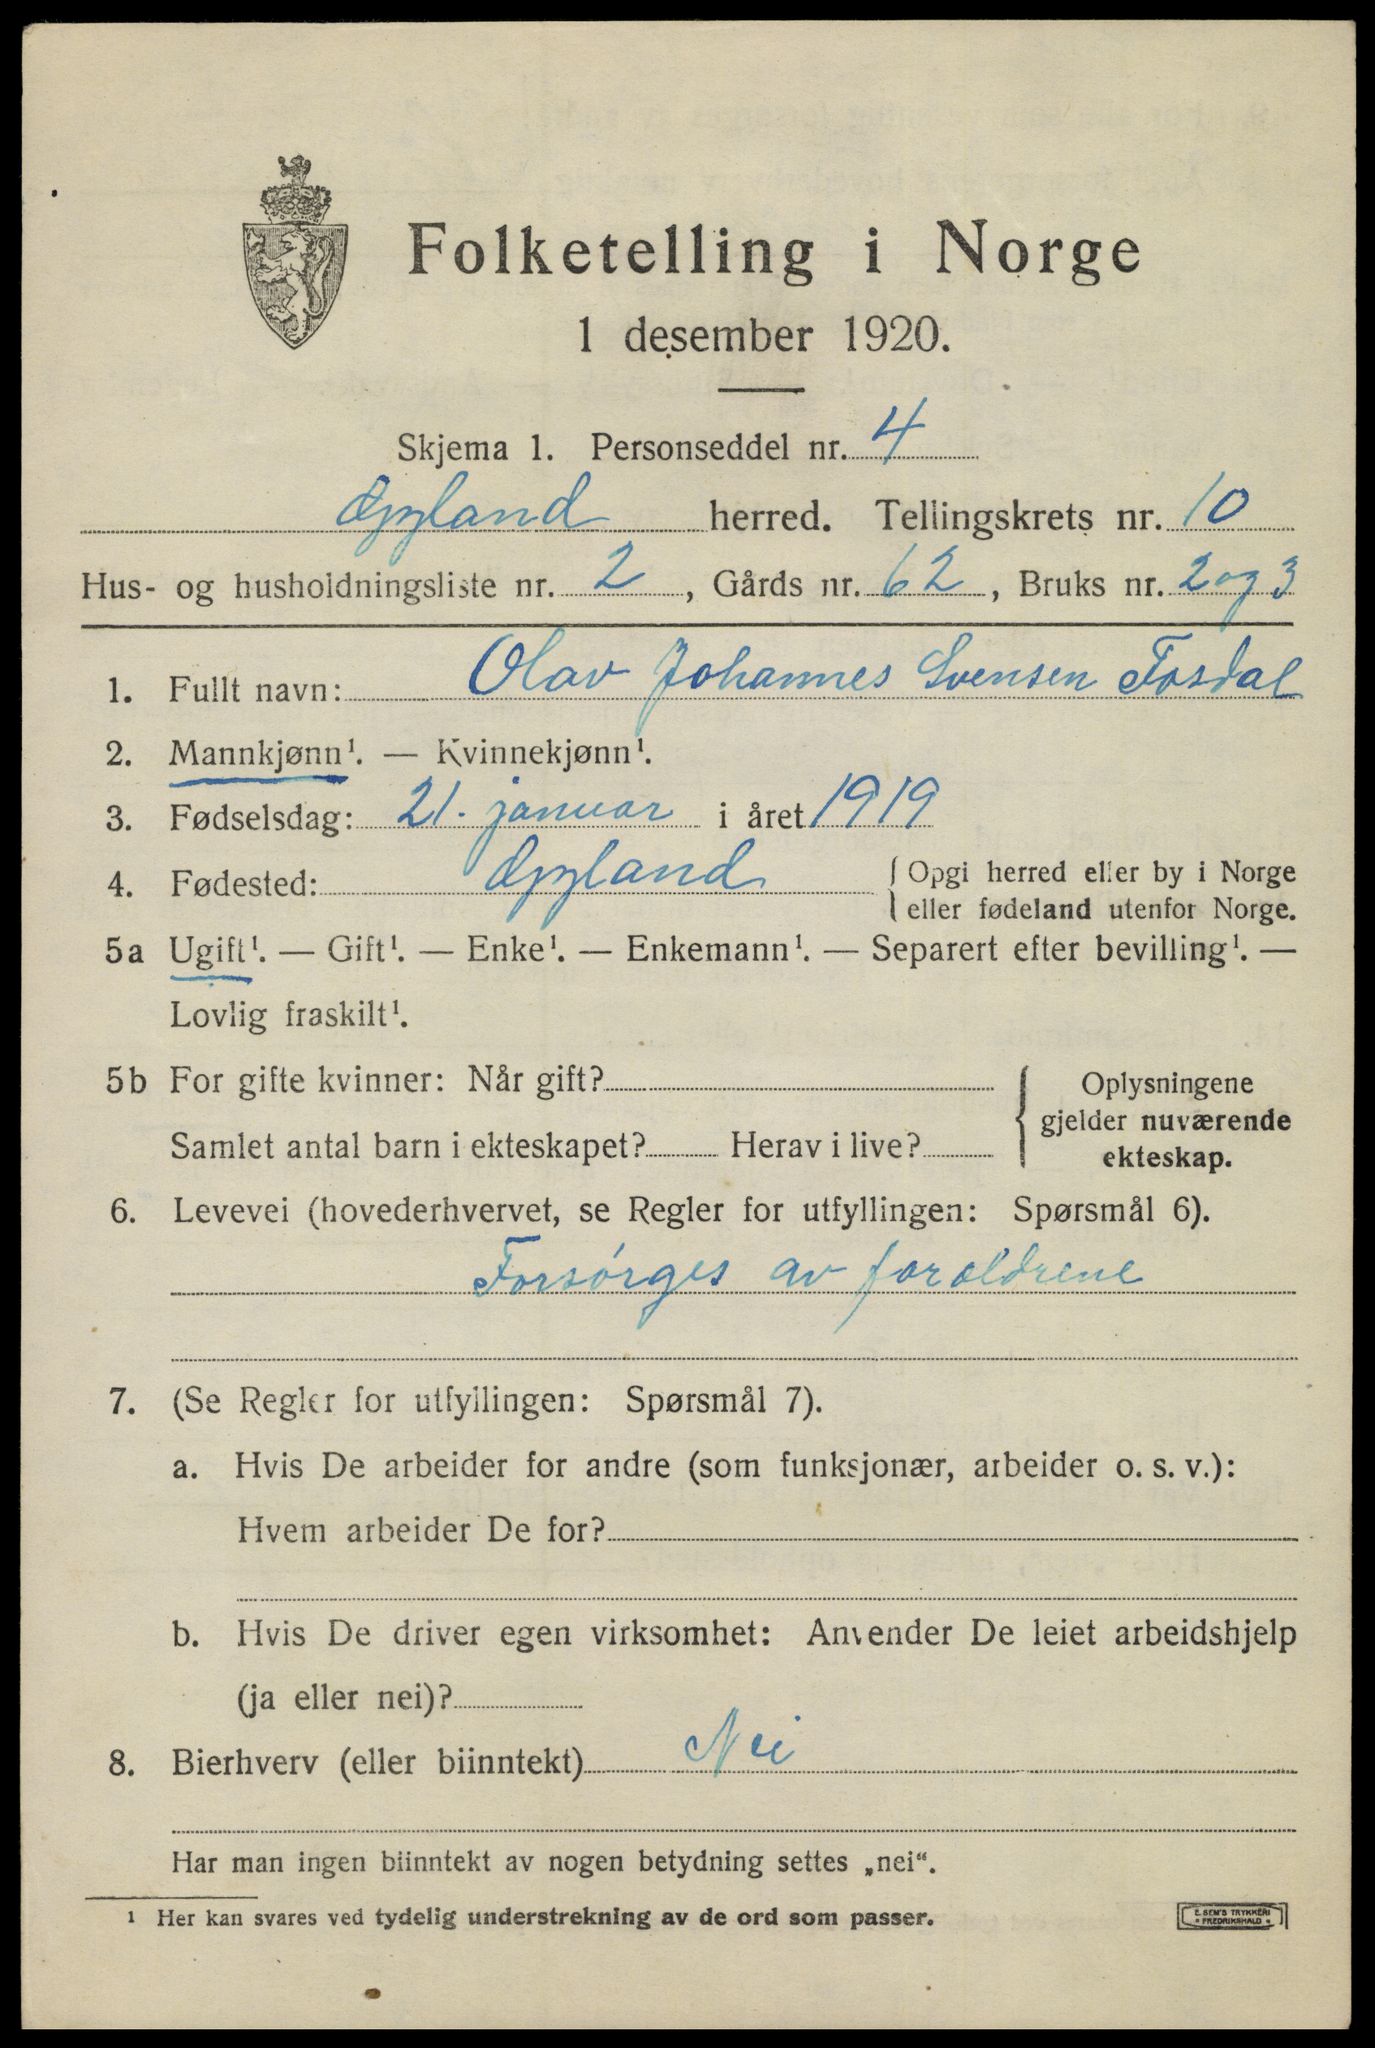 Folketelling i Norge
1 desember 1920.
Skjema 1. Personseddel nr. 4
herred. Tellingskrets nr. 10
Hus- og husholdningsliste nr. 2, Gårds nr. 62, Bruks nr. 2 og 3
1. Fullt navn: Olav Johannes Svensen Fosdal
2. Mannkjønn¹. — Kvinnekjønn¹.
3. Fødselsdag: 21. januar i året 1919
4. Fødested: { Opgi herred eller by i Norge
eller fødeland utenfor Norge.
5a Ugift¹. — Gift¹. — Enke¹. — Enkemann¹. — Separert efter bevilling¹. —
Lovlig fraskilt¹.
5b For gifte kvinner: Når gift?
Samlet antal barn i ekteskapet? Herav i live?
{ Oplysningene
gjelder nuværende
ekteskap.
6. Levevei (hovederhvervet, se Regler for utfyllingen: Spørsmål 6).
Forsørges av foraldrene
7. (Se Regler for utfyllingen: Spørsmål 7).
a. Hvis De arbeider for andre (som funksjonær, arbeider o. s. v.):
Hvem arbeider De for?
b. Hvis De driver egen virksomhet: Anvender De leiet arbeidshjelp
(ja eller nei)?
8. Bierhverv (eller biinntekt) Nei
Har man ingen biinntekt av nogen betydning settes „nei“.
¹ Her kan svares ved tydelig understrekning av de ord som passer.
E. SEM'S TRYKKERI
FREDRIKSHALD